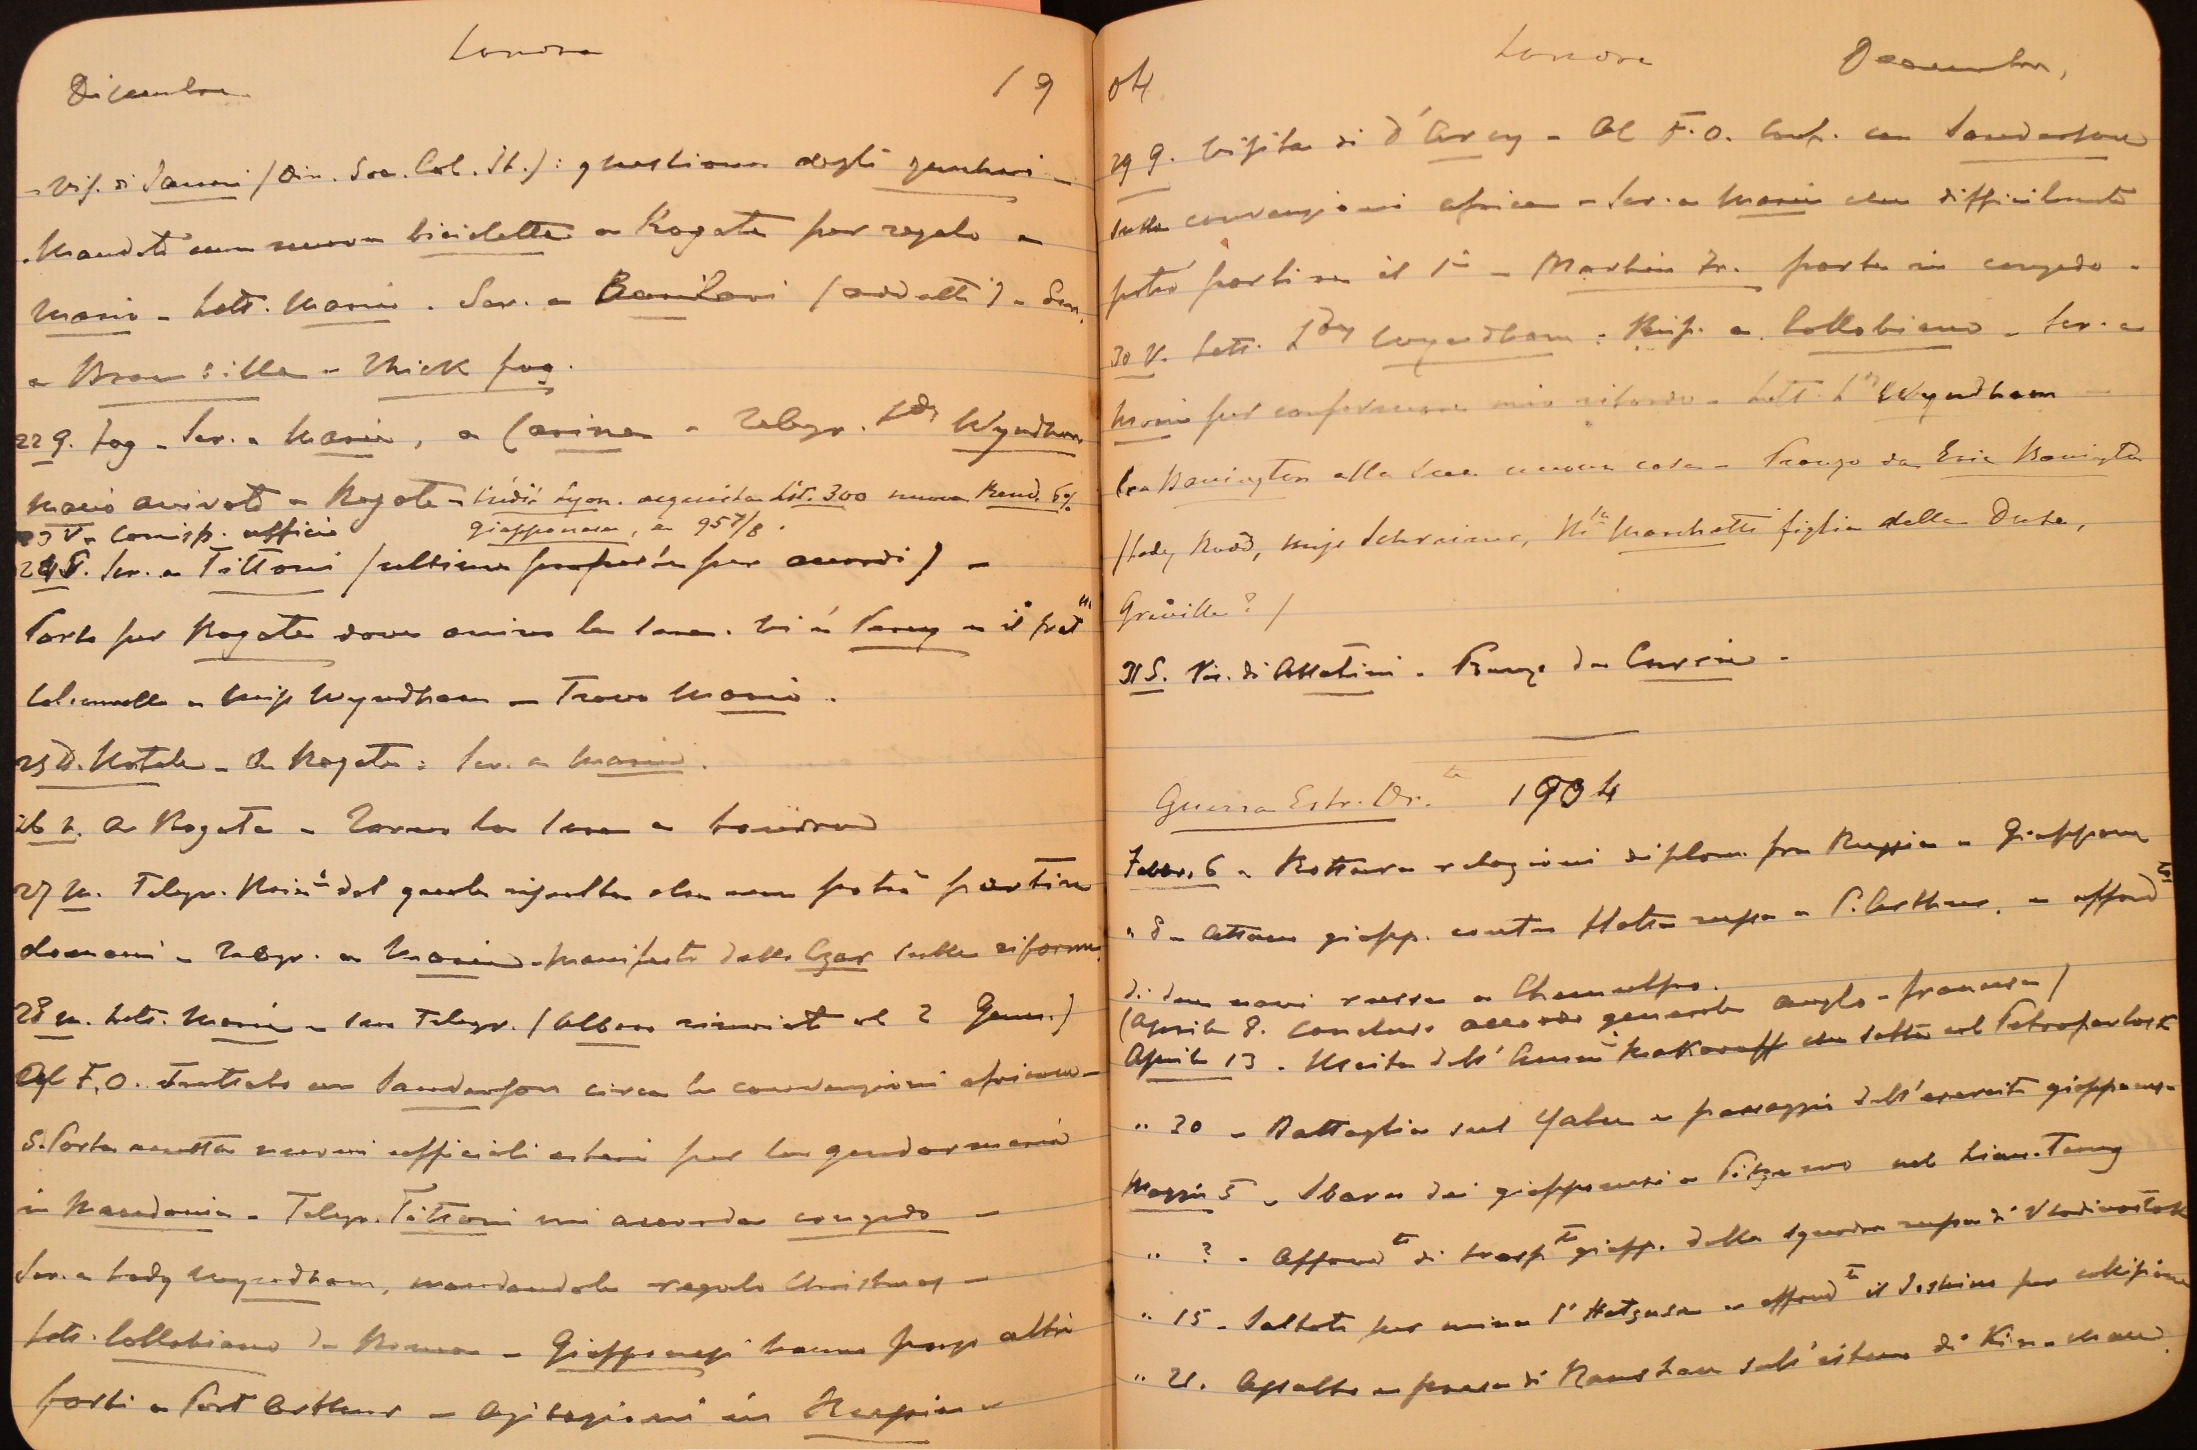 Londra
Dicembre 19
- Vis. di Sanni (Dir. Soc. Col. It.): questione degli zucchari -
Mandato una nuova bicicletta a Rogate per regalo a
Mario - Lett. Maria. Scr. a (addetti) -
a - Thick fog.
22 G. Fog - Scr. a Maria, a Carina - Telegr. Ldy Wyndham
Mario arrivato a Rogate - Crédit Lyon. acquista Lst. 300 nuova Rend. 6%
23 V. Corrisp. ufficio giapponese, a 95 7/8.
24 S. Scr. a Tittoni (ultime per accordi) -
Parto per Rogate dove arrivo la sera. Vi è Percy e il frat
Colonnello e Miss Wyndham - Trovo Mario.
25 D. Natale - A Rogate: Scr. a Maria.
26 L. A Rogate - Torno la sera a Londra
27 M. Telegr. Maria dal quale risulta che non potrà partire
domani - Telegr. a Maria - Manifesto dello Czar sulle riforme.
28 M. Lett. Maria e suo Telegr. (Albero rinviato al 2 Genn.)
Al F.O. Trattato con Sanderson circa le convenzioni africane -
S. Porta accetta nuovi ufficiali esteri per la gendarmeria
in Macedonia - Telegr. Tittoni mi accorda congedo -
Scr. a Lady Wyndham, mandandole regalo Christmas -
Lett. Collobiano da Roma - Giapponesi hanno preso altri
forti a Port Arthur - Agitazioni in Russia -
04 Londra Decembre,
29 G. Visita di d'Arcy - Al F.O. Conf. con Sanderson
sulle convenzioni africane - Scr. a Maria che difficilmente
potrò partire il 1° - Martin Fr. parte in congedo -
30 V. Lett. Ldy Wyndham: Risp. a Collobiano - Scr. a
Maria per confermare mio ritardo - Lett. Ly Wyndham -
Barrington alla sua nuova casa - Pranzo da Eric Barrington
(Lady Rodd, Miss Schreiner, Marchetti figlia della Duse,
Greville?)
31 S. Vis. di Allatini - Pranzo da Carcio -
Guerra Estr. Or.te 1904
Febbr. 6 - Rottura relazioni diplom. fra Russia e Giappone
" 8 - Attacco giapp. contro flotta russa a P. Arthur, e affond.to
di due navi russe a Chemulpo.
(Aprile 8. Concluso accordo generale anglo-francese)
Aprile 13 - Uscita dell' Ammi Makaroff che salta col Petropavlosk
" 30 - Battaglia sul Yalu e passaggio dell'esercito giapponese
Maggio 5 - Sbarco dei giapponesi a Pitzewo nel Liau-Tung
" ? - Affondto di traspte giapp. dalla squadra russa di Vladivostok
" 15 - Saltata per mina l'Hatzuse e affondta il Joshino per collisione
" 21. Assalto e presa di Nanshan sull'istmo di Kin-chau.